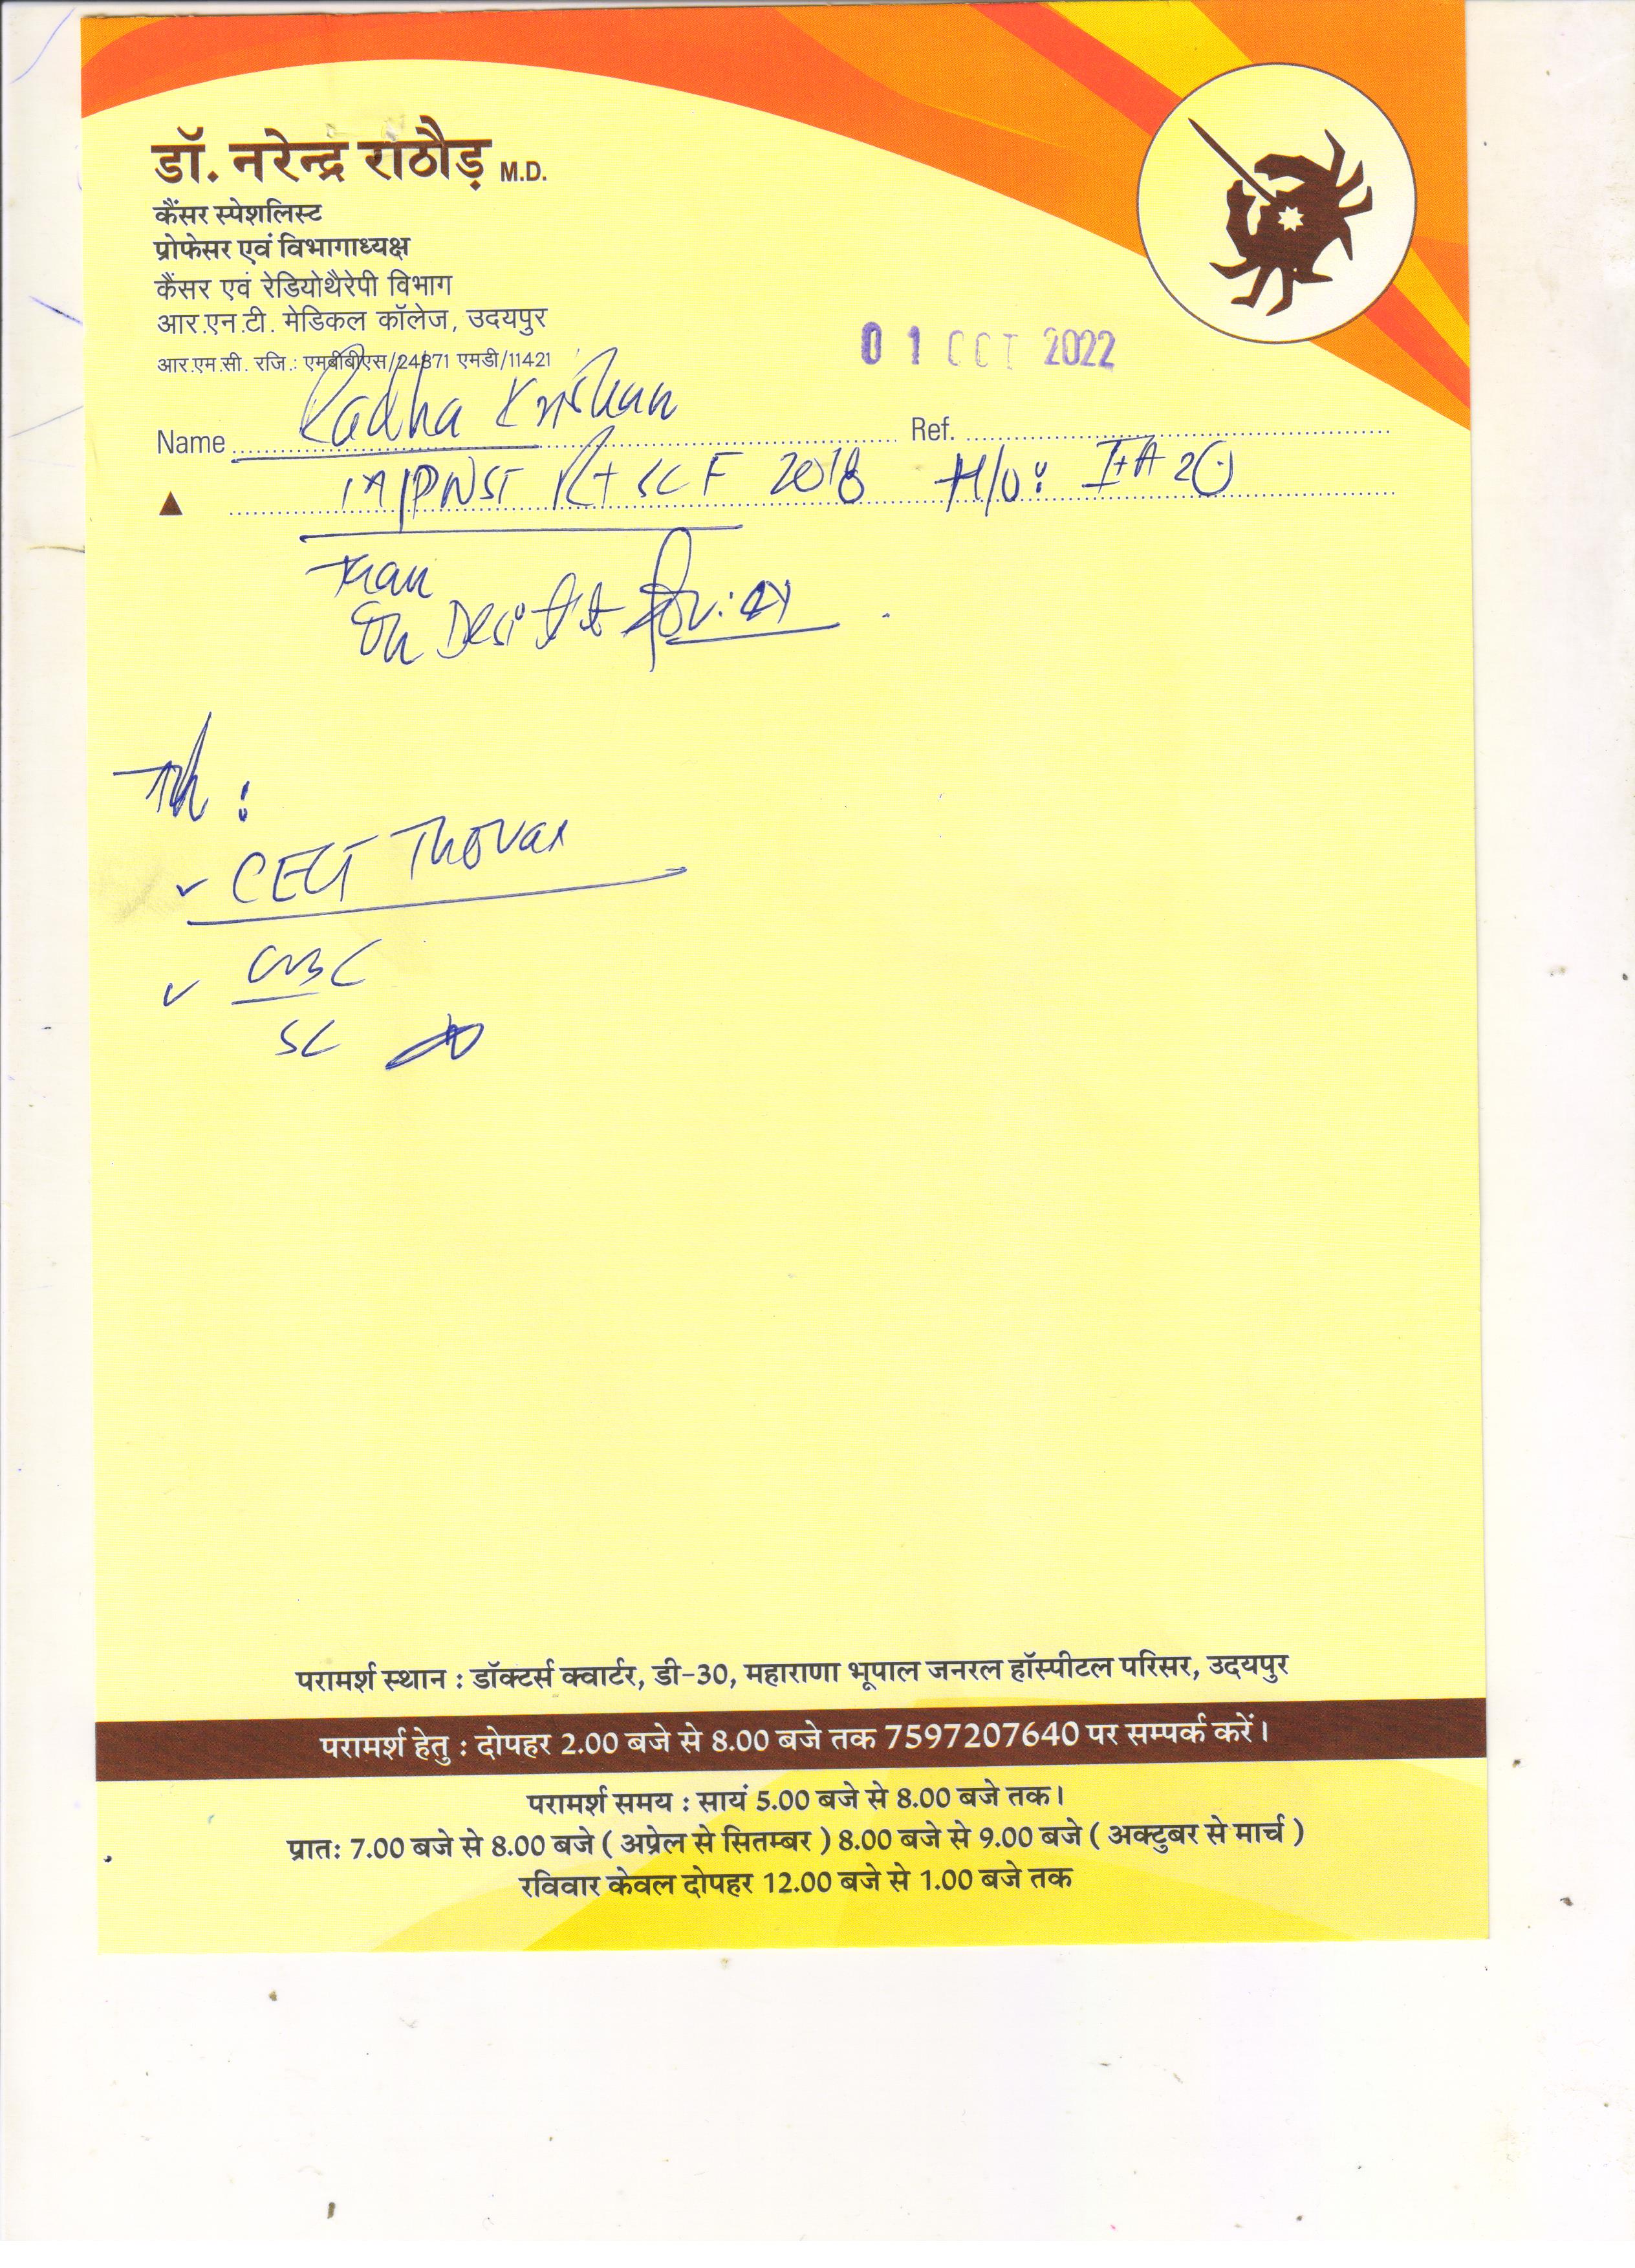 डॉ. नरेन्द्र राठौड़ M.D.
कैंसर स्पेशलिस्ट
प्रोफेसर एवं विभागाध्यक्ष
कैंसर एवं रेडियोथैरेपी विभाग
आर.एन.टी. मेडिकल कॉलेज, उदयपुर
आर.एम.सी. रजि.: एमबीबीएस/24871 एमडी/11421
01 OCT 2022
Name Radha Krishan Ref.
2018 H/o:
CECT Thorax
CBC
SC
परामर्श स्थान : डॉक्टर्स क्वार्टर, डी-30, महाराणा भूपाल जनरल हॉस्पीटल परिसर, उदयपुर
परामर्श हेतु : दोपहर 2.00 बजे से 8.00 बजे तक 7597207640 पर सम्पर्क करें।
परामर्श समय : सायं 5.00 बजे से 8.00 बजे तक।
प्रातः 7.00 बजे से 8.00 बजे ( अप्रेल से सितम्बर ) 8.00 बजे से 9.00 बजे ( अक्टुबर से मार्च )
रविवार केवल दोपहर 12.00 बजे से 1.00 बजे तक